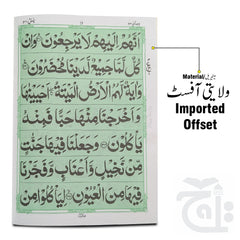 اَنَّهُمْ اِلَيْهِمْ لَا يَرْجِعُوْنَ وَاِنْ
كُلٌّ لَّمَّا جَمِيْعٌ لَّدَيْنَا مُحْضَرُوْنَ
وَاٰيَةٌ لَّهُمُ الْاَرْضُ الْمَيْتَةُ اَحْيَيْنٰهَا
وَاَخْرَجْنَا مِنْهَا حَبًّا فَمِنْهُ
يَاْكُلُوْنَ وَجَعَلْنَا فِيْهَا جَنّٰتٍ
مِّنْ نَّخِيْلٍ وَّاَعْنَابٍ وَّفَجَّرْنَا
فِيْهَا مِنَ الْعُيُوْنِ لِيَاْكُلُوْا مِنْ
Material/میٹیریل
ولایتی آفسٹ
Imported
Offset